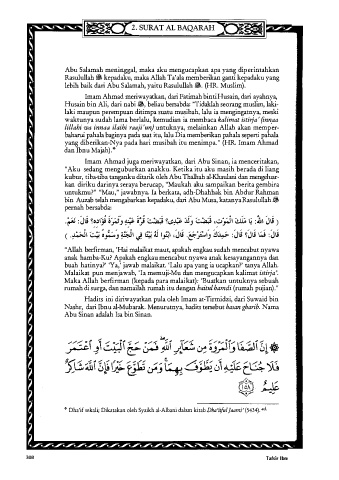 2. SURAT AL BAQARAH
Abu Salamah meninggal, maka aku mengucapkan apa yang diperintahkan
Rasulullah ﷺ kepadaku, maka Allah Ta'ala memberikan ganti kepadaku yang
lebih baik dari Abu Salamah, yaitu Rasulullah ﷺ. (HR. Muslim).
Imam Ahmad meriwayatkan, dari Fatimah binti Husain, dari ayahnya,
Husain bin Ali, dari nabi ﷺ, beliau bersabda: "Tidaklah seorang muslim, laki-
laki maupun perempuan ditimpa suatu musibah, lalu ia mengingatnya, meski
waktunya sudah lama berlalu, kemudian ia membaca kalimat istirja' (innaa
lillahi wa innaa ilaihi raaji'un) untuknya, melainkan Allah akan memper-
baharui pahala baginya pada saat itu, lalu Dia memberikan pahala seperti pahala
yang diberikan-Nya pada hari musibah itu menimpa." (HR. Imam Ahmad
dan Ibnu Majah).*
Imam Ahmad juga meriwayatkan, dari Abu Sinan, ia menceritakan,
"Aku sedang menguburkan anakku. Ketika itu aku masih berada di liang
kubur, tiba-tiba tanganku ditarik oleh Abu Thalhah al-Khaulani dan mengeluar-
kan diriku darinya seraya berucap, "Maukah aku sampaikan berita gembira
untukmu?" "Mau," jawabnya. Ia berkata, adh-Dhahhak bin Abdur Rahman
bin Auzab telah mengabarkan kepadaku, dari Abu Musa, katanya Rasulullah ﷺ
pernah bersabda:
( قَالَ اللَّهُ: يَا مَلَكَ الْمَوْتِ، قَبَضْتَ وَلَدَ عَبْدِي؟ قَبَضْتَ قُرَّةَ عَيْنِهِ وَثَمَرَةَ فُؤَادِهِ؟ قَالَ: نَعَمْ.
قَالَ: فَمَا قَالَ؟ قَالَ: حَمِدَكَ وَاسْتَرْجَعَ. قَالَ: ابْنُوا لَهُ بَيْتًا فِي الْجَنَّةِ وَسَمُّوهُ بَيْتَ الْحَمْدِ. )
"Allah berfirman, 'Hai malaikat maut, apakah engkau sudah mencabut nyawa
anak hamba-Ku? Apakah engkau mencabut nyawa anak kesayangannya dan
buah hatinya?' 'Ya,' jawab malaikat. 'Lalu apa yang ia ucapkan?' tanya Allah.
Malaikat pun menjawab, 'Ia memuji-Mu dan mengucapkan kalimat istirja'.
Maka Allah berfirman (kepada para malaikat): 'Buatkan untuknya sebuah
rumah di surga, dan namailah rumah itu dengan baitul hamdi (rumah pujian).'
Hadits ini diriwayatkan pula oleh Imam at-Tirmidzi, dari Suwaid bin
Nashr, dari Ibnu al-Mubarak. Menurutnya, hadits tersebut hasan gharib. Nama
Abu Sinan adalah Isa bin Sinan.
۞ إِنَّ الصَّفَا وَالْمَرْوَةَ مِن شَعَائِرِ اللَّهِ فَمَنْ حَجَّ الْبَيْتَ أَوِ اعْتَمَرَ
فَلَا جُنَاحَ عَلَيْهِ أَن يَطَّوَّفَ بِهِمَا وَمَن تَطَوَّعَ خَيْرًا فَإِنَّ اللَّهَ شَاكِرٌ
عَلِيمٌ ١٥٨
* Dha'if sekali; Dikatakan oleh Syaikh al-Albani dalam kitab Dha'iiful Jaami' (5434).-ed.
308
Tafsir Ibnu